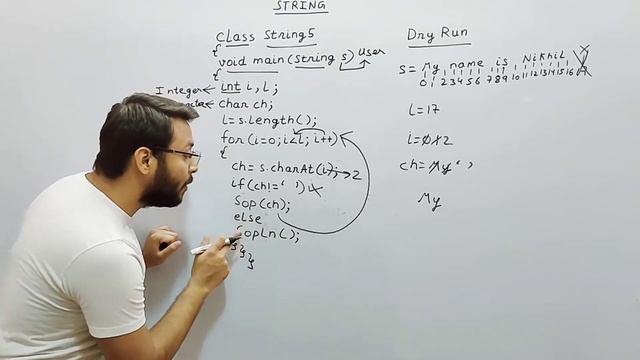 STRING
class String5
{
void main(String s) User
{
Integer ← int i, l;
char ch;
l = s.length();
for(i=0; i<l; i++)
{
ch = s.charAt(i); → 2
if(ch!=' ')
Sop(ch);
else
Sopln();
}
}
}
Dry Run
s = My name is Nikhil
0 1 2 3 4 5 6 7 8 9 10 11 12 13 14 15 16
l = 17
i = 0 1 2
ch = M y ' '
My